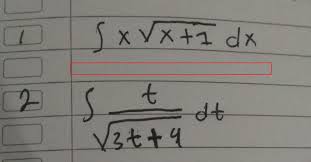 1 ∫ x √(x+1) dx
2 ∫ t/√(3t+4) dt